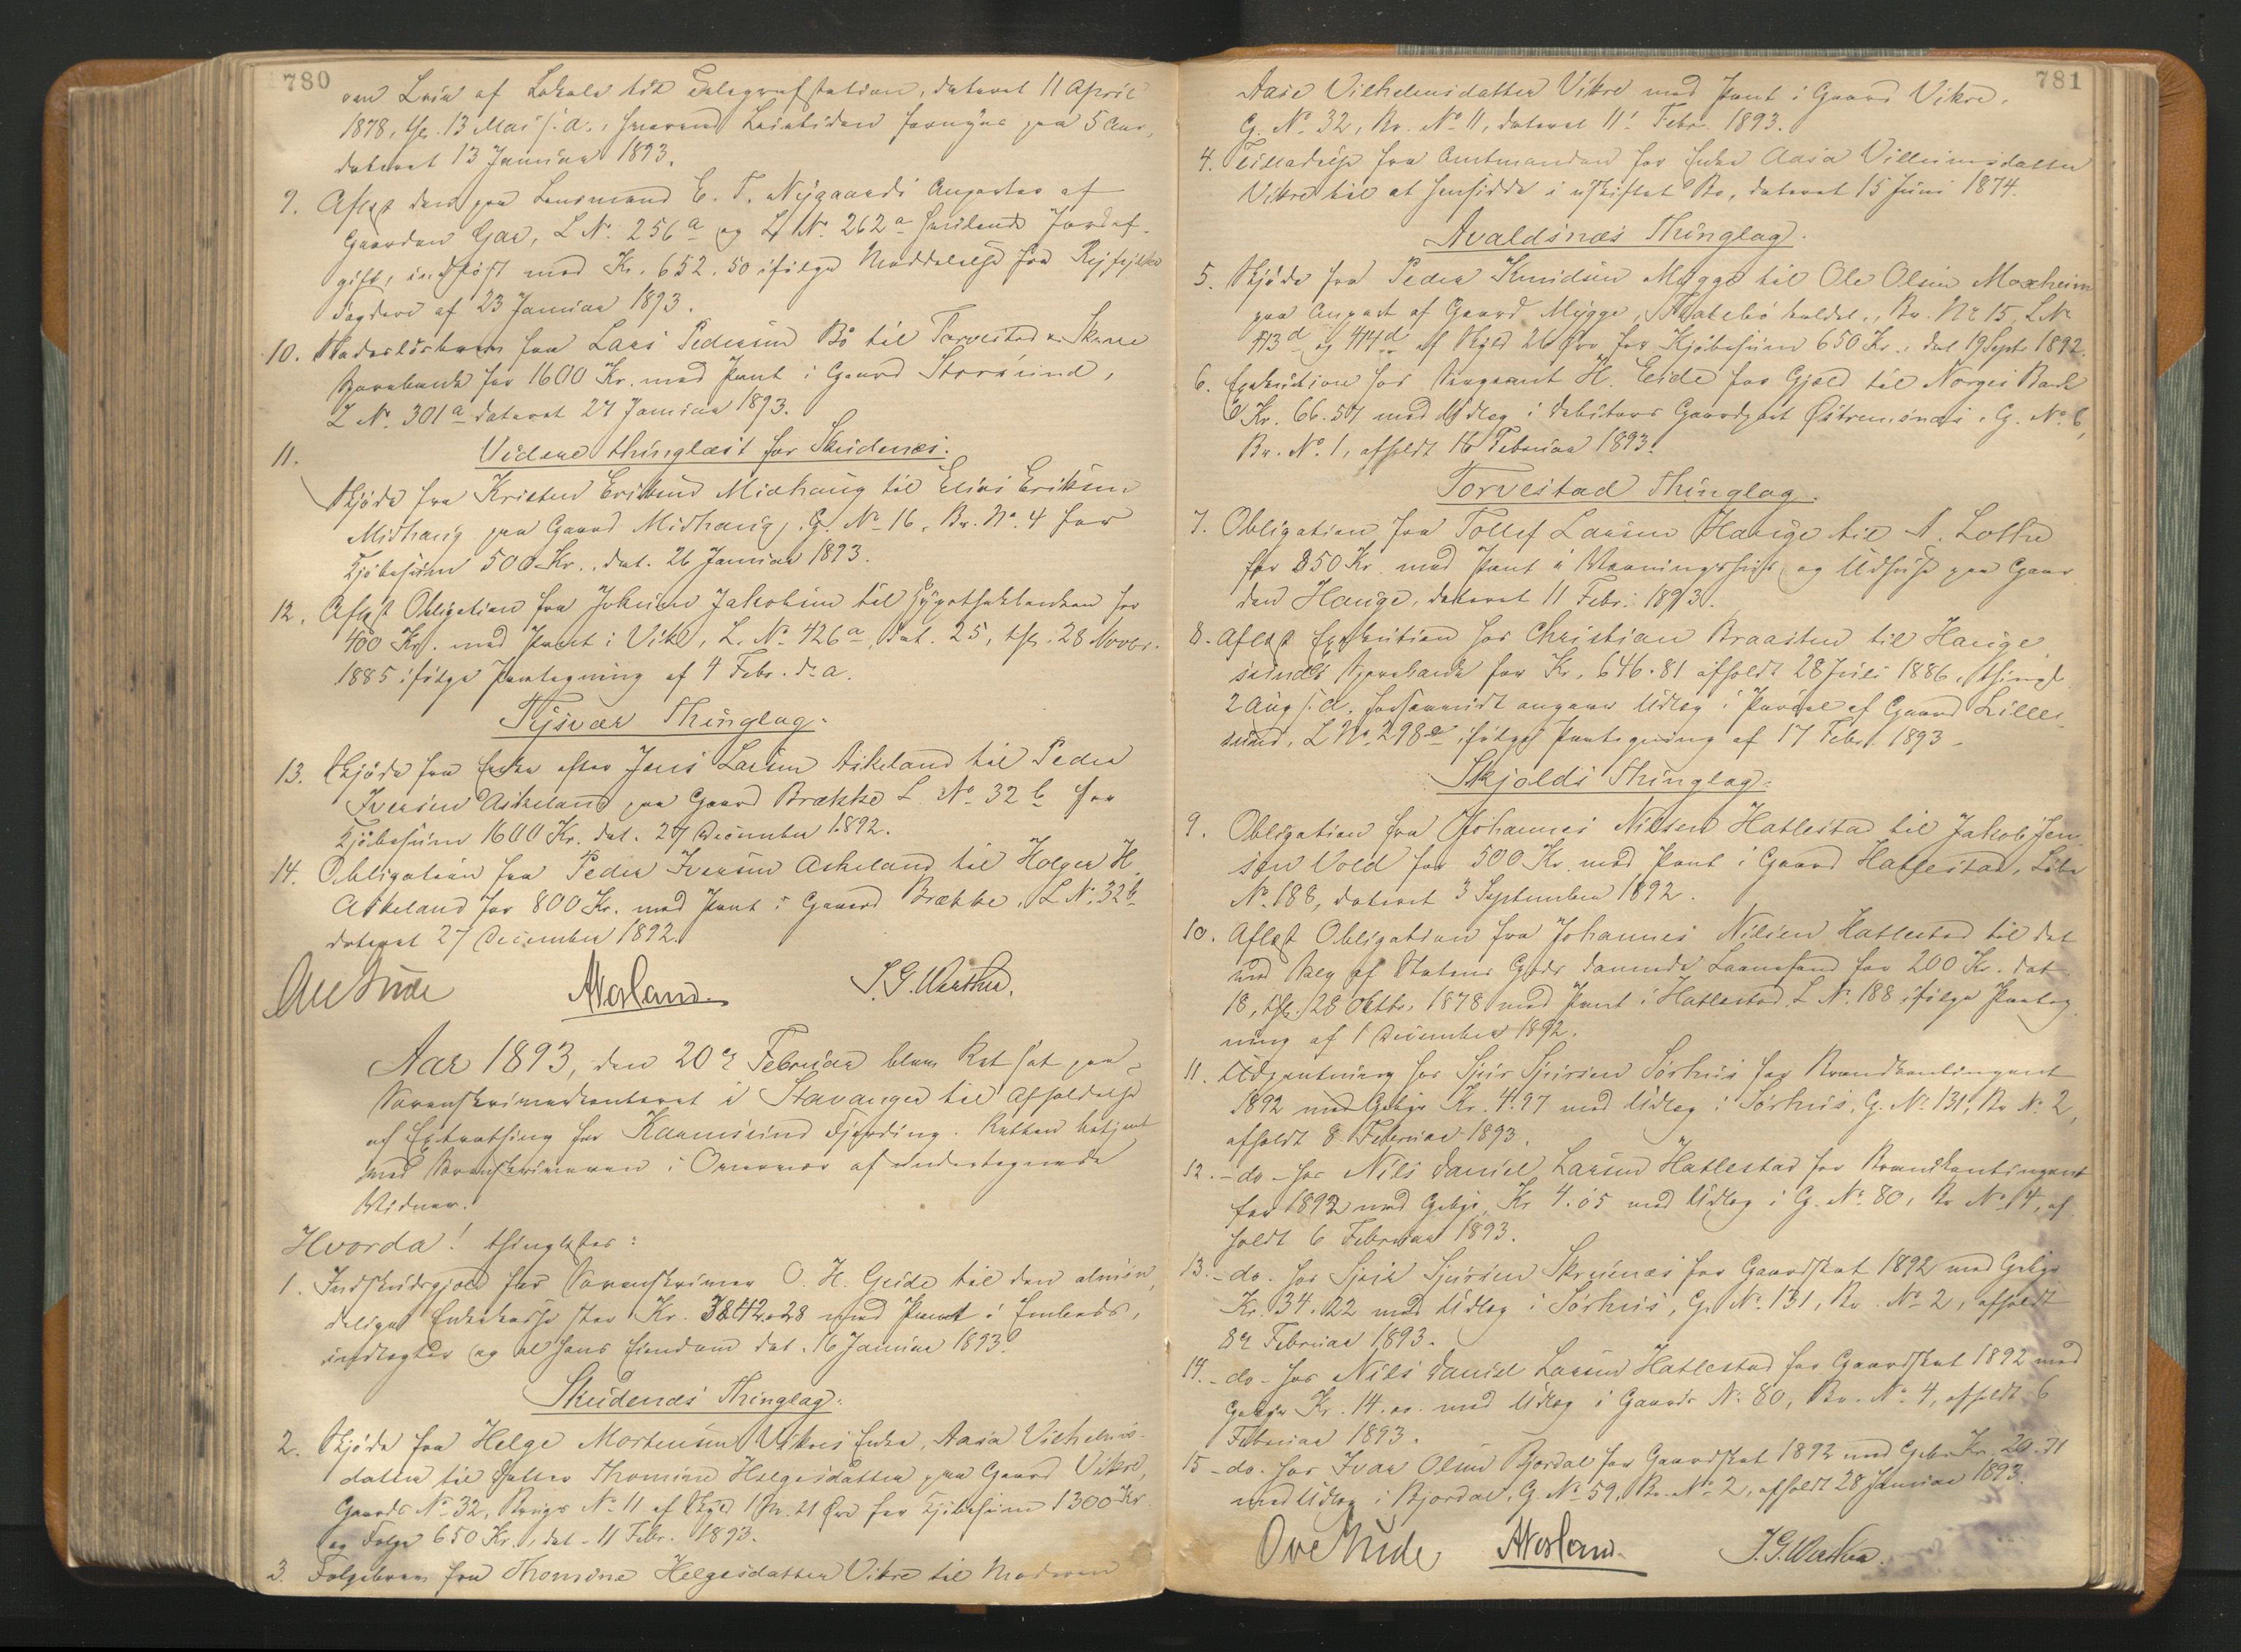 780
om Leie af Lokale til Telegrafstation, dateret 11 April
1878, thgl. 13 Mai s. a., hvorved Leietiden fornyes paa 5 Aar,
dateret 13 Januar 1893.
9. Aflæst den paa Lensmand E. T. Nygaards Anparter af
Gaarden Gar, L No. 256a og L No. 262a heftende Jordaf-
gift, indløst med Kr. 652.50 ifølge Meddelelse fra Ryfylke
Fogderi af 23 Januar 1893.
10. Skadesløsbrev fra Lars Pedersen Bø til Torvestad & Skaare
Sparebank for 1600 Kr. med Pant i Gaard Storesund,
L No. 301a dateret 27 Januar 1893.
11. Videre thinglæst for Skudenes.
Skjøde fra Kristen Eriksen Midhaug til Elias Eriksen
Midhaug paa Gaard Midhaug, G. No 16, Br. No. 4 for
Kjøbesum 500 Kr., dat. 26 Januar 1893.
12. Aflæst Obligation fra Jakobsen til Hypothekbanken for
400 Kr. med Pant i Vike, L. No 426a, dat. 25, thgl. 28 Novbr.
1885 ifølge Paategning af 4 Febr. d. a.
Tysvær Thinglag.
13. Skjøde fra Enke efter Jens Larsen Askeland til Peder
Iversen Askeland paa Gaard Brække L. No 32 b for
Kjøbesum 1600 Kr. dat. 27 December 1892.
14. Obligation fra Peder Iversen Askeland til Holger H.
Askeland for 800 Kr. med Pant i Gaard Brække, L No. 32b
dateret 27 December 1892.
Aar 1893, den 20de Februar blev Ret sat paa
Sorenskriverkontoret i Stavanger til Afholdelse
af Extrathing for Karmsund Fjerding. Retten betjent
med Sorenskriveren i Overvær af undertegnede
Vidner.
Hvorda! thinglæstes:
1. Indskudsgjæld fra Sorenskriver O. H. Geide til den almin-
delige Enkekasse stor Kr. 3842.28 med Pant i Embeds-
indtægter og al hans Eiendom dat. 16 Januar 1893.
Skudenes Thinglag.
2. Skjøde fra Helge Mortensen Vikres Enke, Aasa Vilhelms-
datter til Datter Thomine Helgesdatter paa Gaard Vikre,
Gaards No 32, Brugs No 11 af Skyld 1 M. 21 Øre for Kjøbesum 1300 Kr.
og Folge 650 Kr., dat. 11 Febr. 1893.
3. Folgebrev fra Thomine Helgesdatter Vikre til Moderen
781
Aase Vilhelmsdatter Vikre med Pant i Gaard Vikre,
G. No 32, Br. No 11, dateret 11 Febr. 1893.
4. Tilladelse fra Amtmanden for Enke Aasa Villumsdatter
Vikre til at hensidde i uskiftet Bo, dateret 15 Juni 1874.
Avaldsnæs Thinglag.
5. Skjøde fra Peder Knudsen Mygge til Ole Olsen Moxheim
paa Anpart af Gaard Mygge, kaldet, Br. No 15, L No
113d og 114d af Skyld 26 Øre for Kjøbesum 650 Kr., dat 19 Septr 1892.
6. Exekution hos Sergeant H. Eide for Gjæld til Norges Bank
Kr. 66.57 med Udlæg i Debitors Gaardpart Østremsnæs, G. No 6,
Br. No 1, afholdt 16 Februar 1893.
Torvestad Thinglag.
7. Obligation fra Tollef Larsen Hauge til A. Lothe
for 850 Kr. med Pant i Vaaningshus og Udhuse paa Gaar-
den Hauge, dateret 11 Febr. 1893.
8. Aflæst Exekution hos Christian Braasten til Hauge-
sunds Sparebank for Kr. 646.81 afholdt 28 Juli 1886, thingl.
2 Aug s. a. forsaavidt angaar Udlæg i Parcel af Gaard Lille-
sund, L No. 298e ifølge Paategning af 17 Febr. 1893.
Skjolds Thinglag.
9. Obligation fra Johannes Nilsen Hatlestad til Jakob Jen-
sen Vold for 500 Kr. med Pant i Gaard Hatlestad, Løbe
No. 188, dateret 3 September 1892.
10. Aflæst Obligation fra Johannes Nilsen Hatlestad til det
ved Salg af Statens Gods dannede Laanefond for 200 Kr. dat.
18, thgl. 28 Oktbr. 1878 med Pant i Hatlestad L No. 188 ifølge Paateg-
ning af 1 December 1892.
11. Udpantning hos Sjur Sjursen Sørhus for Brandkontingent
1892 med Gebyr Kr. 4.97 med Udlæg i Sørhus, G. No. 131, Br No. 2,
afholdt 8 Februar 1893.
12. - do - hos Nils Daniel Larsen Hatlestad for Brandkontingent
for 1892 med Gebyr, Kr 4.05 med Udlæg i G. No. 80, Br No. 4, af-
holdt 6 Februar 1893.
13. - do. hos Sjur Sjursen Skrunæs for Gaardskat 1892 med Gebyr
Kr. 34.22 med Udlæg i Sørhus, G. No. 131, Br. No 2, afholdt
8de Februar 1893.
14. - do - hos Nils Daniel Larsen Hatlestad for Gaardskat 1892 med
Gebyr Kr. 14. med Udlæg i Gaards No. 80, Br. No. 4, afholdt 6
Februar 1893.
15 - do. hos Ivar Olsen Bjordal for Gaardskat 1892 med Gebyr Kr. 20.71
med Udlæg i Bjordal, G. No 59, Br. No 2, afholdt 28 Januar 1893.